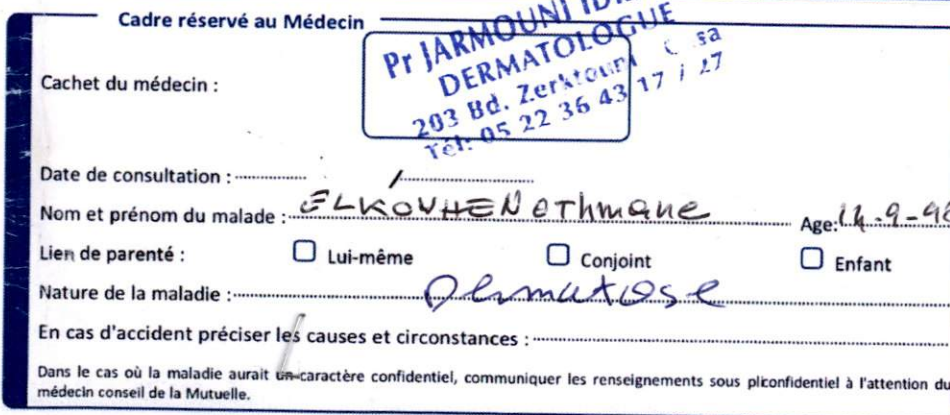 Cadre réservé au Médecin
Pr JARMOUNI
DERMATOLOGUE
203 Bd. Zerktouni
Tél: 05 22 36 43 17 / 27
Cachet du médecin :
Date de consultation : /
Nom et prénom du malade : ELKOUHEN OThmane Age:
Lien de parenté : Lui-même Conjoint Enfant
Nature de la maladie : Dermatose
En cas d'accident préciser les causes et circonstances :
Dans le cas où la maladie aurait un caractère confidentiel, communiquer les renseignements sous pliconfidentiel à l'attention du
médecin conseil de la Mutuelle.